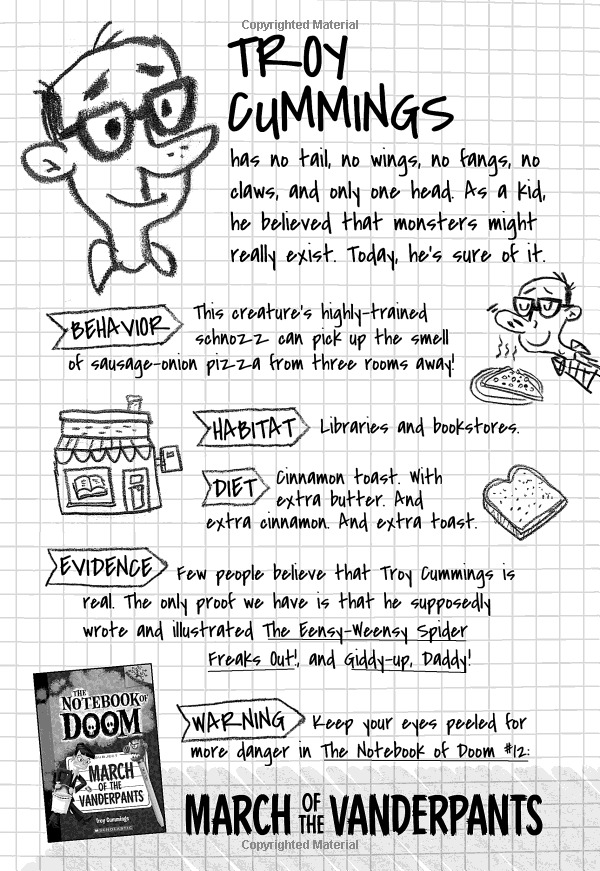 Copyrighted Material
TROY
CUMMINGS
has no tail, no wings, no fangs, no
claws, and only one head. As a kid,
he believed that monsters might
really exist. Today, he's sure of it.
BEHAVIOR
This creature's highly-trained
schnozz can pick up the smell
of sausage-onion pizza from three rooms away!
HABITAT
Libraries and bookstores.
DIET
Cinnamon toast. With
extra butter. And
extra cinnamon. And extra toast.
EVIDENCE
Few people believe that Troy Cummings is
real. The only proof we have is that he supposedly
wrote and illustrated The Eensy-Weensy Spider
Freaks Out!, and Giddy-up, Daddy!
THE
NOTEBOOK OF
DOOM
MARCH
OF THE
VANDERPANTS
Troy Cummings
SCHOLASTIC
WARNING
Keep your eyes peeled for
more danger in The Notebook of Doom #12:
MARCH OF THE VANDERPANTS
Copyrighted Material